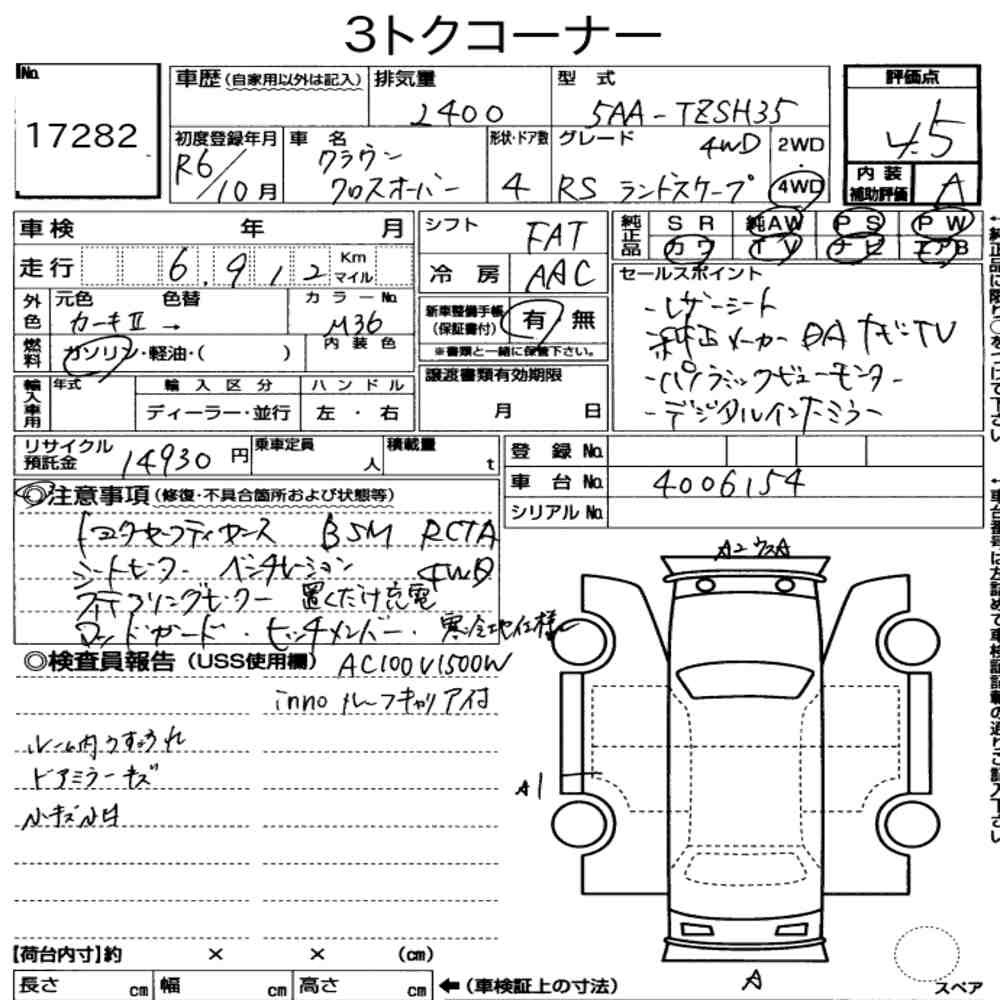 3トクコーナー
No. 17282
車歴（自家用以外は記入） 排気量 2400 型式 5AA-TZSH35
評価点 4.5
初度登録年月 R6/10月 車名 クラウン クロスオーバー 形状・ドア数 4 グレード 4WD RS ランドスケープ 2WD・4WD
内装補助評価 A
車検 年 月
走行 6.912 Km マイル
外色 元色 カーキⅡ 色替 → カラーNo. M36
燃料 ガソリン・軽油・( ) 内装色
輸入車用 年式 輸入区分 ディーラー・並行 ハンドル 左・右
シフト FAT
冷房 AAC
新車整備手帳（保証書付） 有 無
※書類と一緒に保管下さい。
譲渡書類有効期限
月 日
純正品 SR 純AW PS PW
カワ TV ナビ エアB
セールスポイント
-レザーシート
-純正メーカーDAナビTV
-パノラミックビューモニター
-デジタルインナーミラー
←純正品に限り○をつけて下さい
リサイクル預託金 14930円 乗車定員 人 積載量 t
登録No.
車台No. 4006154
シリアルNo.
←車台番号は左詰めで車検証記載の通りご記入下さい
◎注意事項（修復・不具合箇所および状態等）
トヨタセーフティセンス BSM RCTA
シートヒーター ベンチレーション 4WD
ステアリングヒーター 置くだけ充電
ロッドガード・ヒッチメンバー・寒冷地仕様
◎検査員報告（USS使用欄） AC100V1500W
inno ルーフキャリア付
ルーム内うすよごれ
ドアミラーキズ
小キズ小凹
A2 ウスA
A1
A
【荷台内寸】約 × × (cm)
長さ cm 幅 cm 高さ cm ←（車検証上の寸法）
スペア